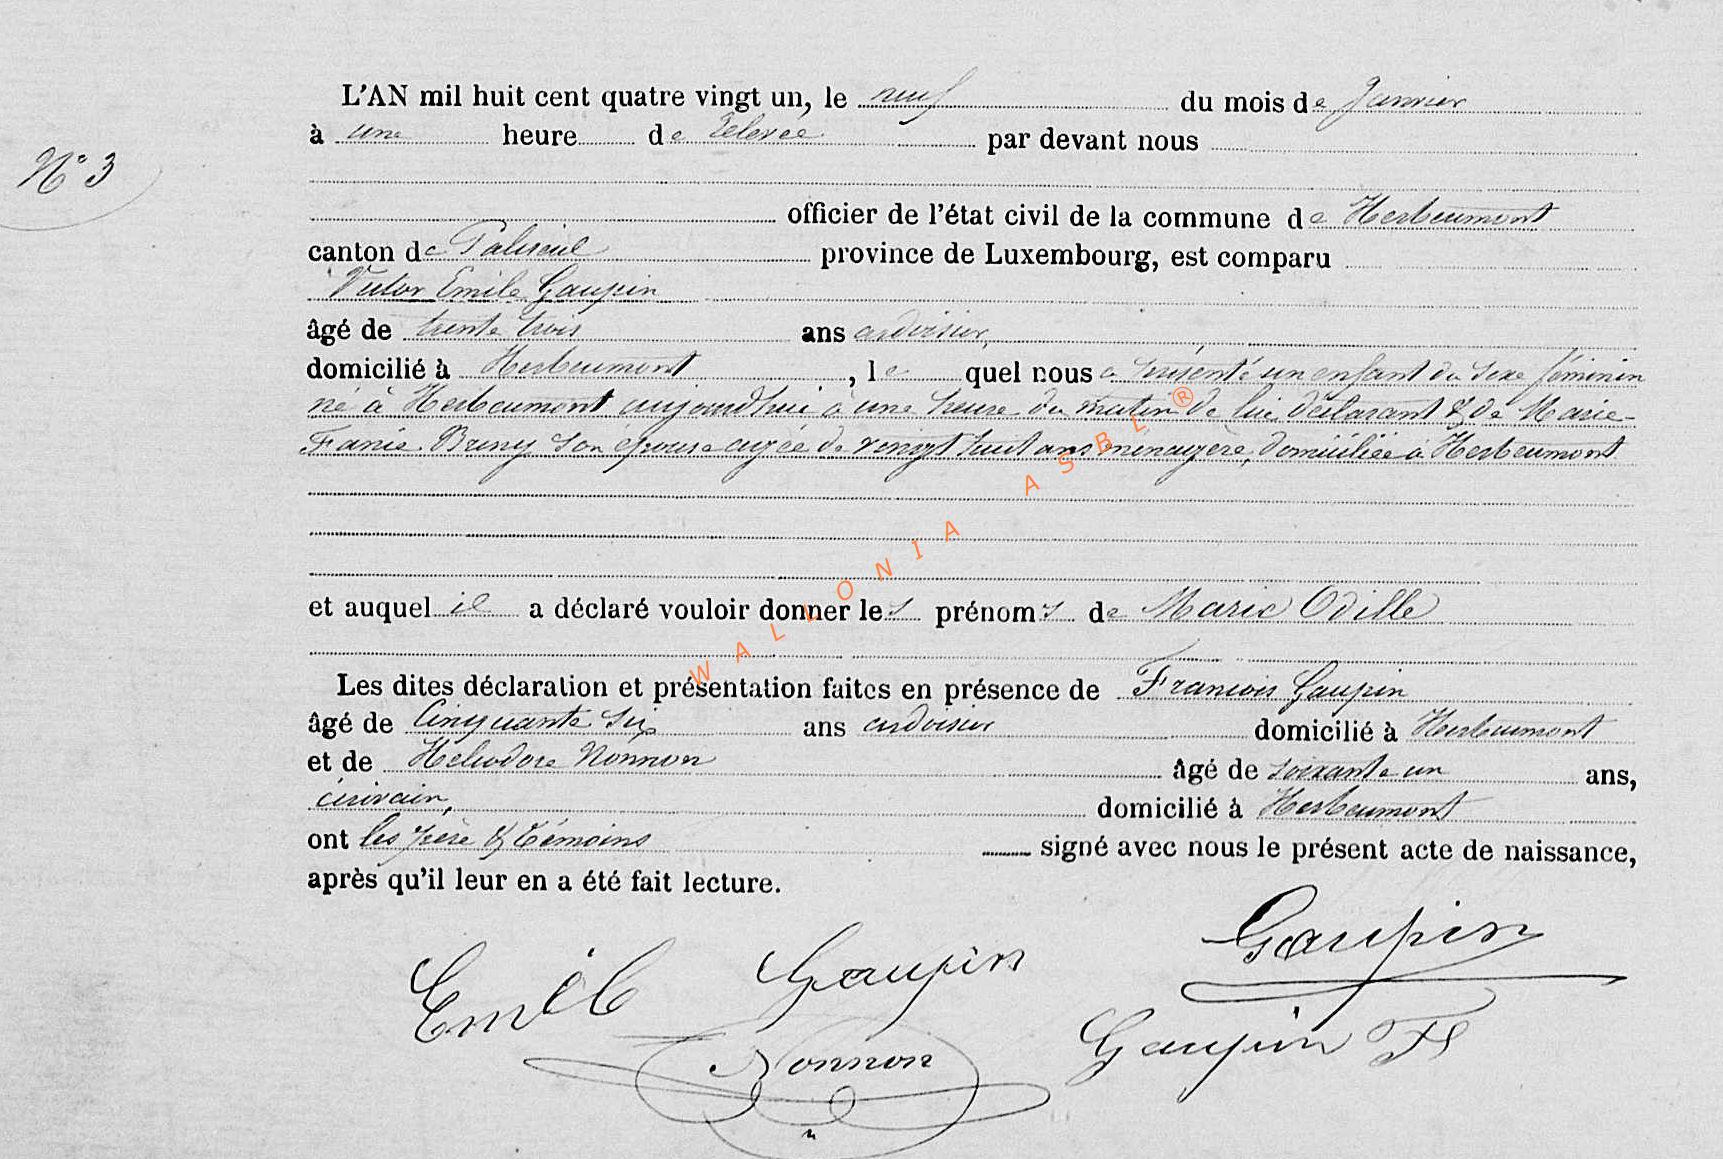 L'AN mil huit cent quatre vingt un, le neuf du mois de Janvier
à une heure de relevée par devant nous
N° 3
officier de l'état civil de la commune de Herbeumont
canton de Paliseul province de Luxembourg, est comparu
Victor Emile Gaupin
âgé de trente trois ans ardoisier,
domicilié à Herbeumont, le quel nous a présenté un enfant du sexe féminin
né à Herbeumont aujourdhui à une heure du matin de lui déclarant & de Marie-
Fanie Briny son épouse agée de vingt huit ans ménagère, domiciliée à Herbeumont
et auquel il a déclaré vouloir donner les prénoms de Marie Odille
Les dites déclaration et présentation faites en présence de Francois Gaupin
âgé de Cinquante six ans ardoisier domicilié à Herbeumont
et de Heliodore Nonnon âgé de soixante un ans,
écrivain, domicilié à Herbeumont
ont les père & témoins signé avec nous le présent acte de naissance,
après qu'il leur en a été fait lecture.
Gaupin
Emile Gaupin
Gaupin F
Nonnon
WALLONIA ASBL®